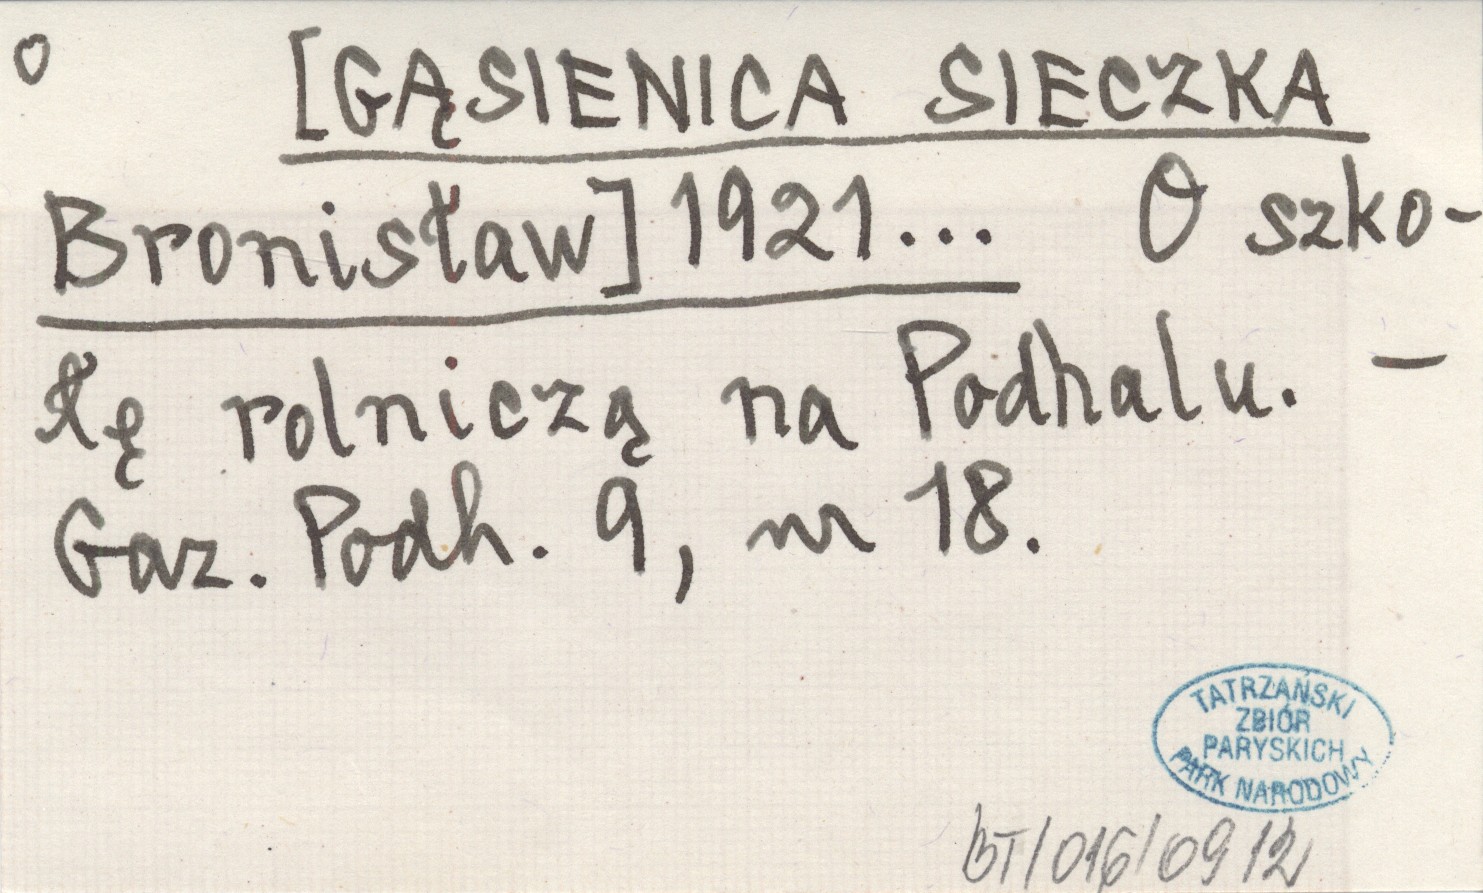 o [GĄSIENICA SIECZKA
Bronisław] 1921... O szko-
łę rolniczą na Podhalu. –
Gaz. Podh. 9, nr 18.
TATRZAŃSKI
ZBIÓR
PARYSKICH
PARK NARODOWY
BT/016/0912